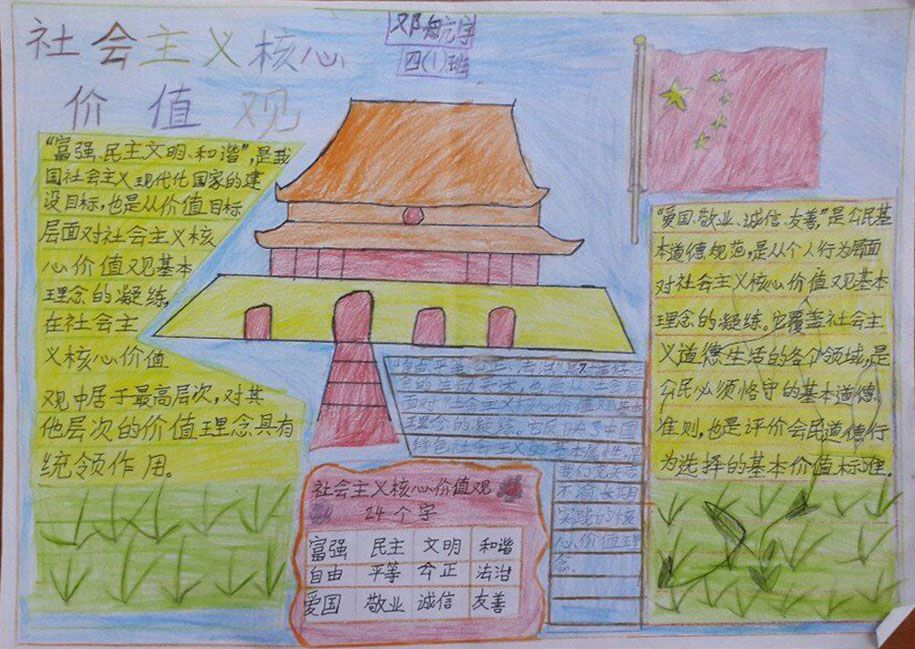 社会主义核心
价值观
四(1)班
"富强、民主文明、和谐",是我
国社会主义现代化国家的建
设目标,也是从价值目标
层面对社会主义核
心价值观基本
理念的凝练,
在社会主
义核心价值
观中居于最高层次,对其
他层次的价值理念具有
统领作用。
会的生动表述,也是从社会层
面对"社会主义核心价值观基本
理念的凝练。它反映了中国
特色社会主义的基本属性,是
我们党矢志
不渝、长期
实践的核
心价值理
念.
社会主义核心价值观
24个字
富强 民主 文明 和谐
自由 平等 公正 法治
爱国 敬业 诚信 友善
"爱国、敬业、诚信、友善",是公民基
本道德规范,是从个人行为层面
对社会主义核心价值观基本
理念的凝练。它覆盖社会主
义道德生活的各个领域,是
公民必须恪守的基本道德
准则,也是评价会民道德行
为选择的基本价值标准.